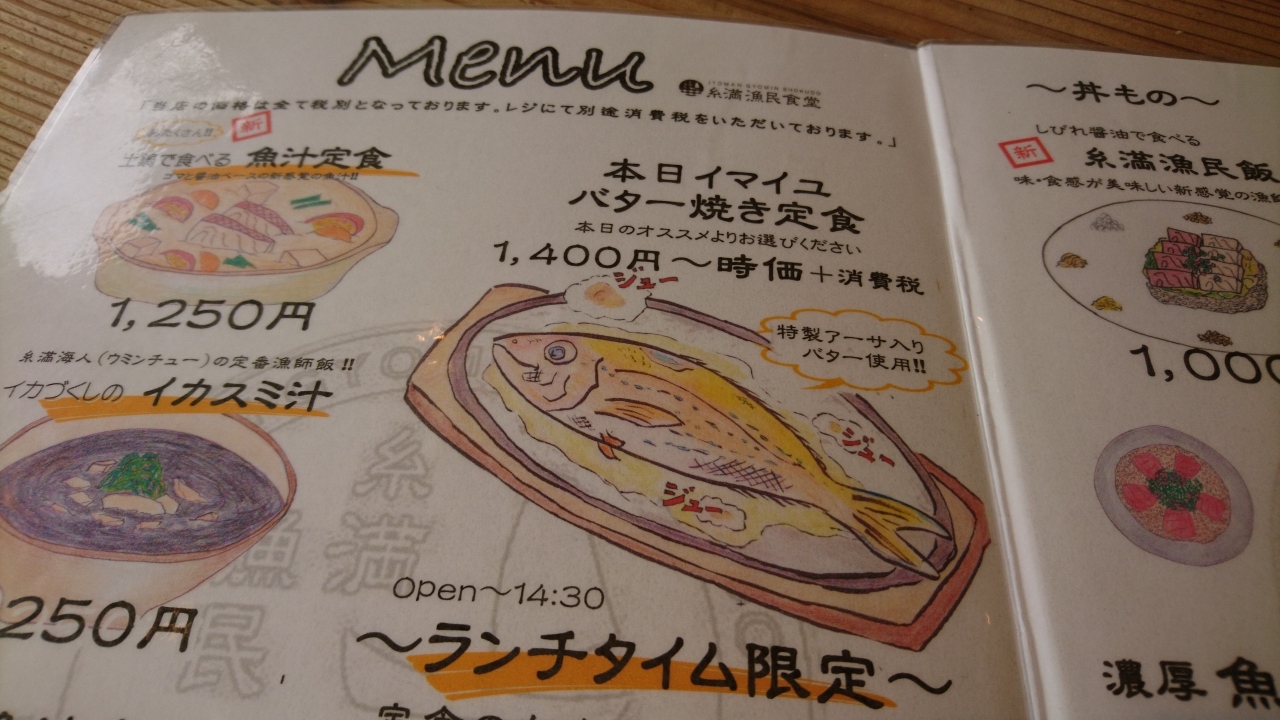 Menu
ITOMAN GYOMIN SHOKUDO
糸満漁民食堂
「当店の価格は全て税別となっております。レジにて別途消費税をいただいております。」
新
土鍋で食べる 魚汁定食
ゴマと醤油ベースの新感覚の魚汁!!
1,250円
糸満海人(ウミンチュー)の定番漁師飯!!
イカづくしの イカスミ汁
250円
本日イマイユ
バター焼き定食
本日のオススメよりお選びください
1,400円～時価+消費税
ジュー
特製アーサ入り
バター使用!!
ジュー
ジュー
Open～14:30
～ランチタイム限定～
～丼もの～
しびれ醤油で食べる
新
糸満漁民飯
味・食感が美味しい新感覚の漁
1,000
濃厚 魚